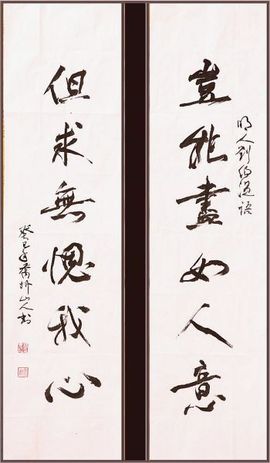 明人劉伯溫語
豈能盡如人意
但求無愧我心
癸巳
山人書